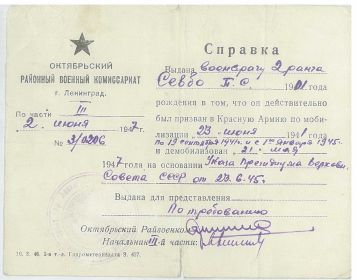 ОКТЯБРЬСКИЙ
РАЙОННЫЙ ВОЕННЫЙ КОМИССАРИАТ
г. Ленинград.
По части III
2 июня 1947 г.
№ 3/0206
Справка
Выдана военврачу 2 ранга
Севбо П.С. 1901
рождения в том, что он действительно
был призван в Красную Армию по мобилизации
23 июня 1941 г.
По 19 сентября 1941 г. и с 1 января 1945
и демобилизован 21 мая
1947 года на основании Указа Президиума Верховн.
Совета СССР от 23.6.45.
Выдана для представления
По требованию
Октябрьский Райвоенком
Начальник III-й части: